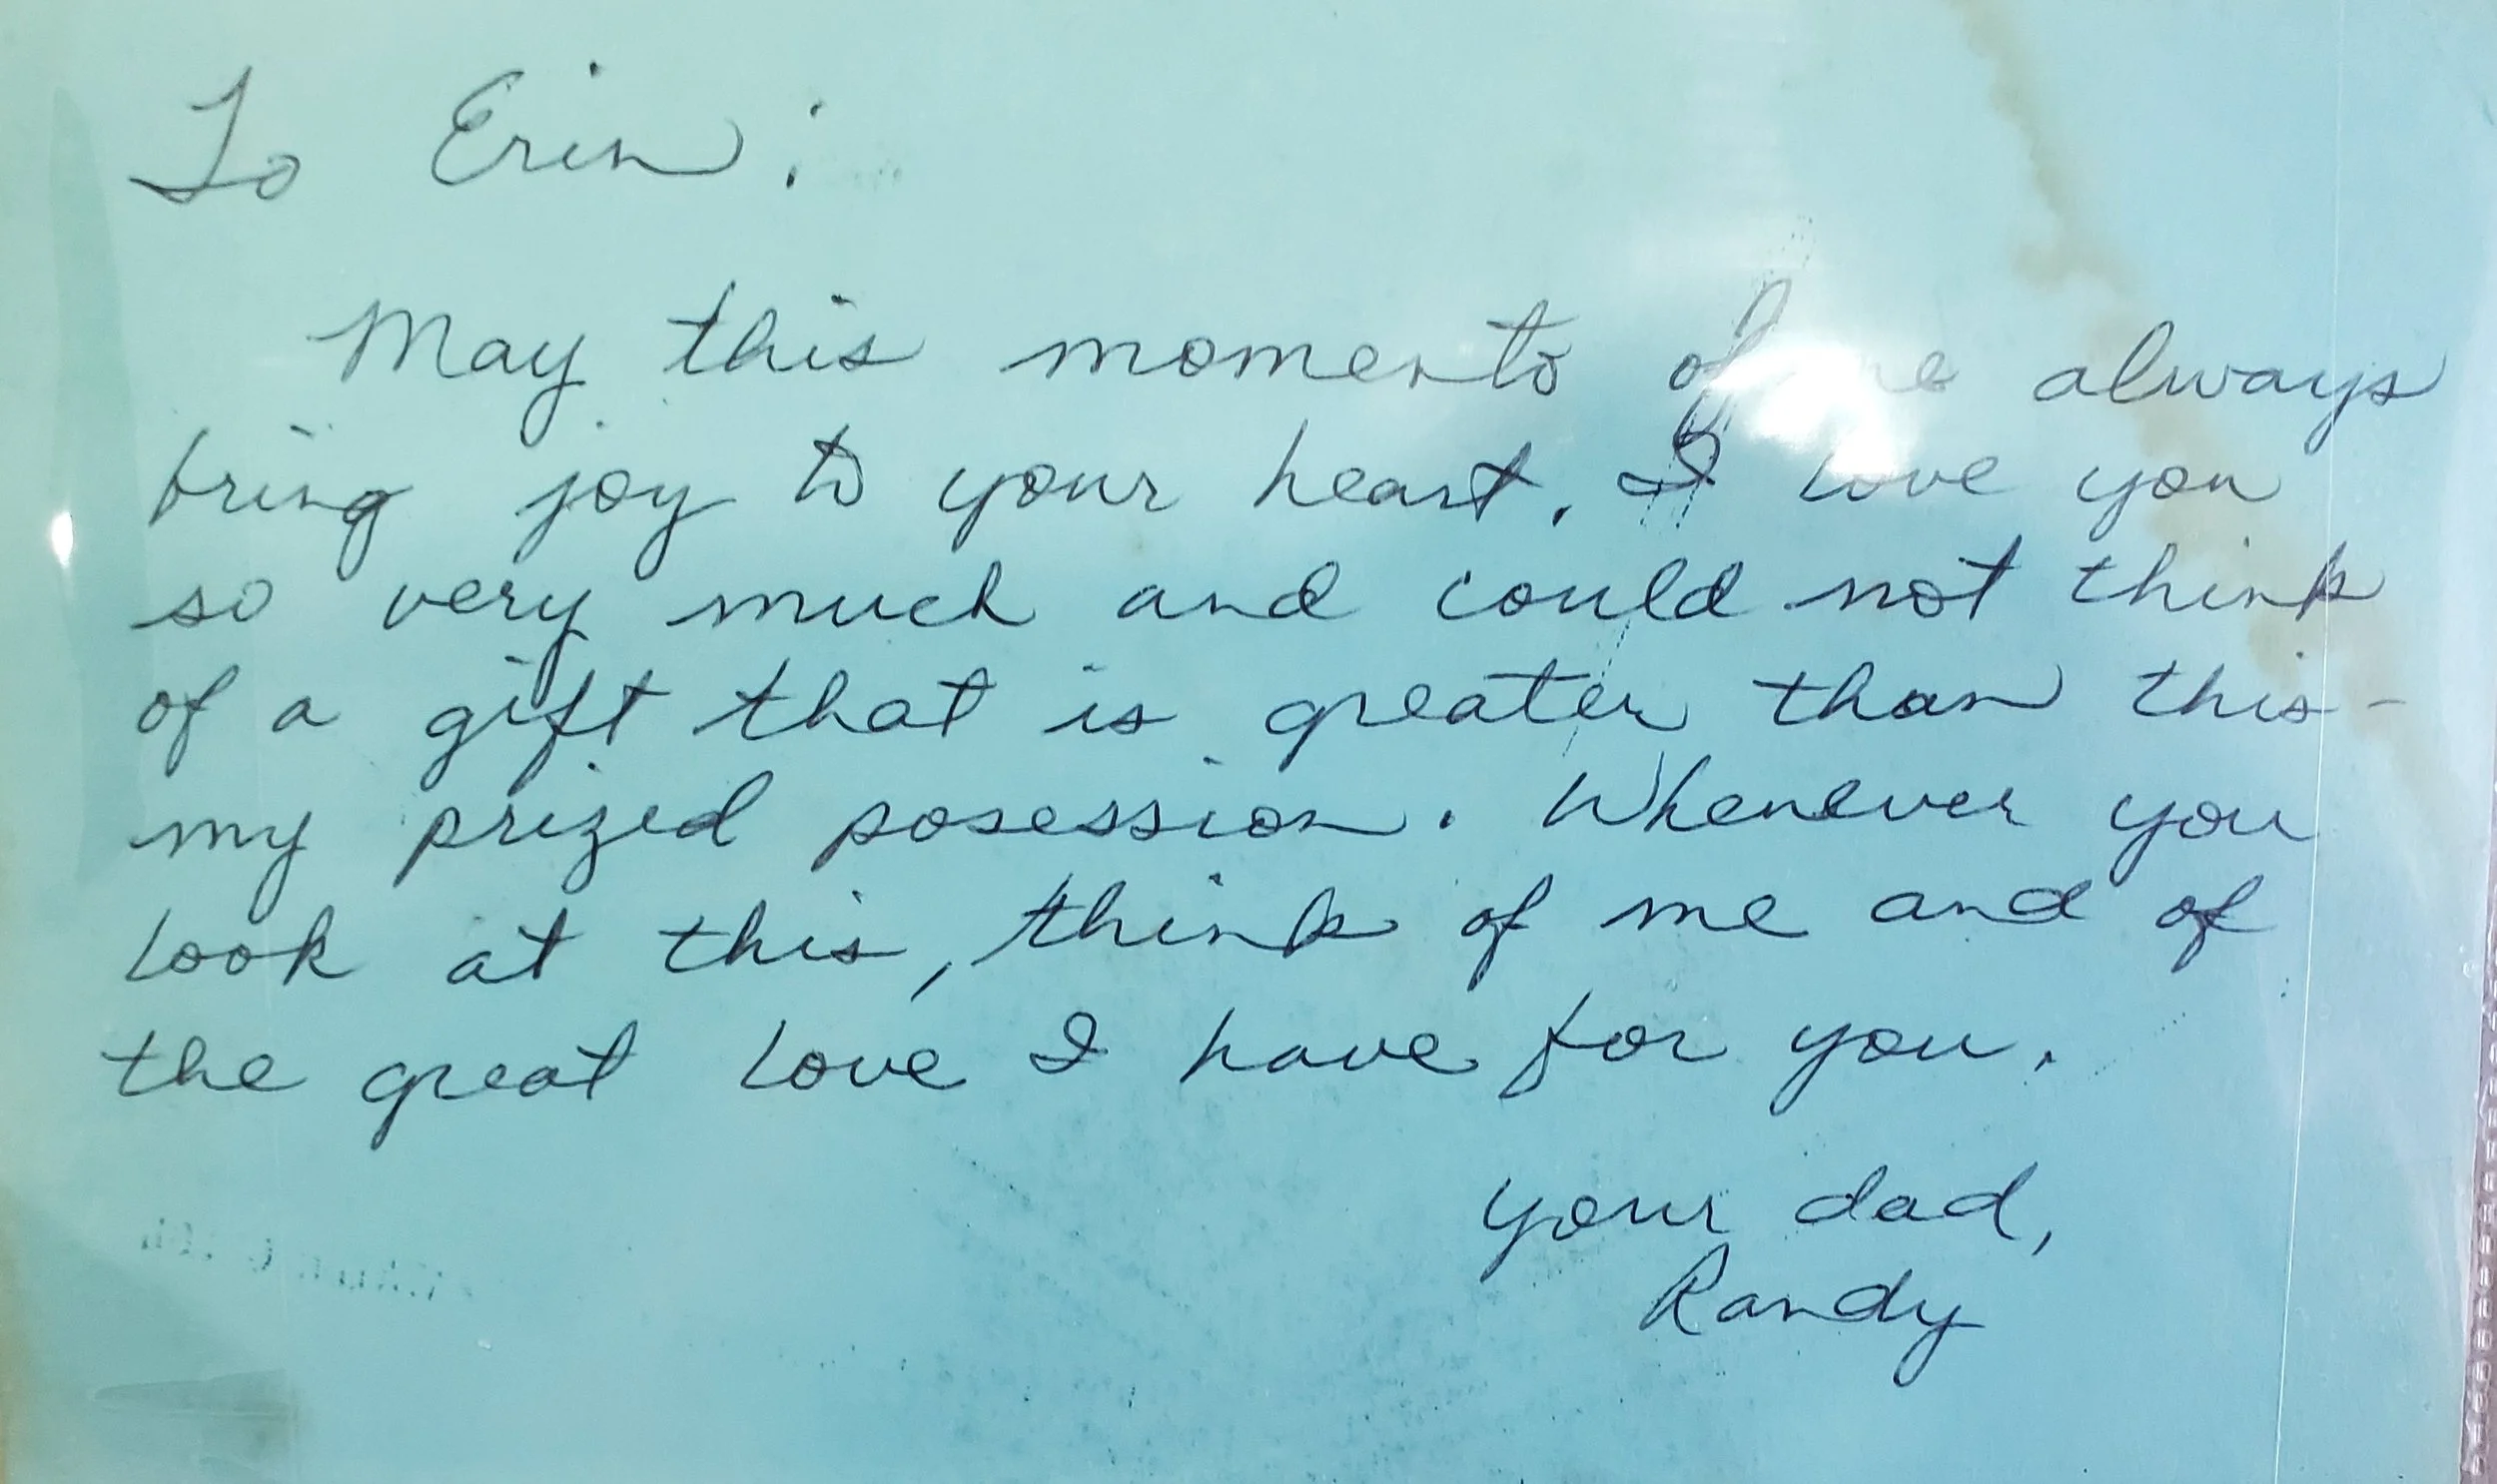 To Erin:
May this momento of me always
bring joy to your heart. I love you
so very much and could not think
of a gift that is greater than this-
my prized posession. Whenever you
look at this, think of me and of
the great love I have for you.
your dad,
Randy